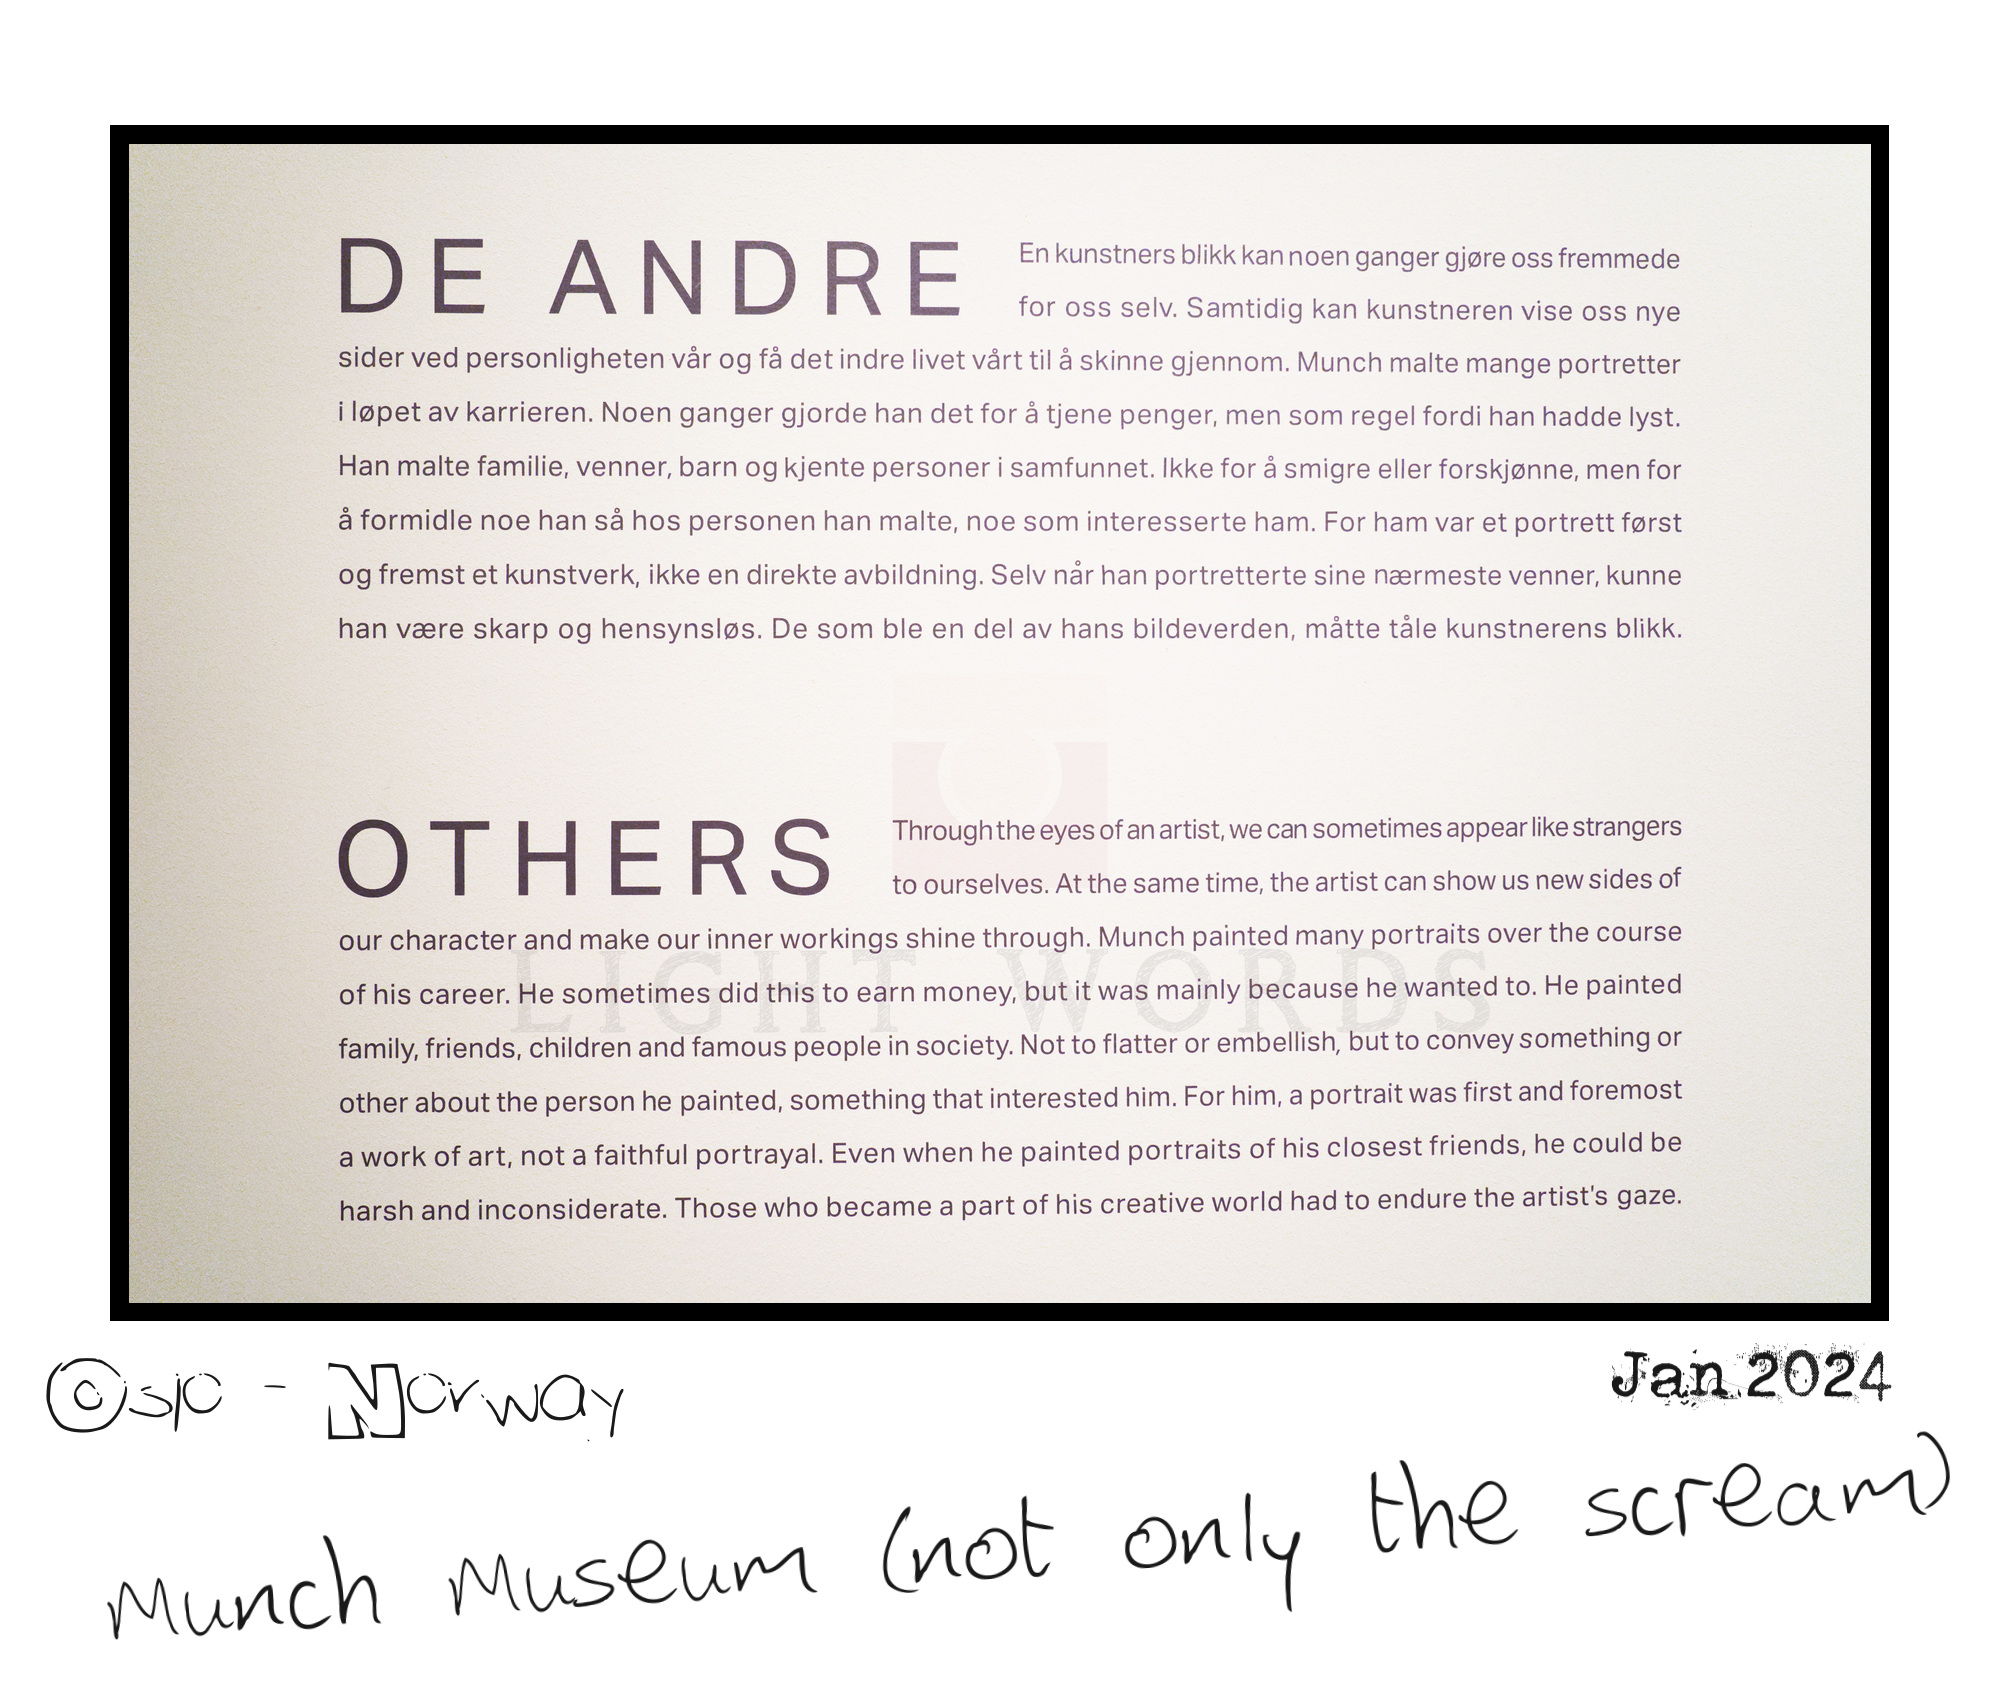 DE ANDRE En kunstners blikk kan noen ganger gjøre oss fremmede
for oss selv. Samtidig kan kunstneren vise oss nye
sider ved personligheten vår og få det indre livet vårt til å skinne gjennom. Munch malte mange portretter
i løpet av karrieren. Noen ganger gjorde han det for å tjene penger, men som regel fordi han hadde lyst.
Han malte familie, venner, barn og kjente personer i samfunnet. Ikke for å smigre eller forskjønne, men for
å formidle noe han så hos personen han malte, noe som interesserte ham. For ham var et portrett først
og fremst et kunstverk, ikke en direkte avbildning. Selv når han portretterte sine nærmeste venner, kunne
han være skarp og hensynsløs. De som ble en del av hans bildeverden, måtte tåle kunstnerens blikk.
OTHERS Through the eyes of an artist, we can sometimes appear like strangers
to ourselves. At the same time, the artist can show us new sides of
our character and make our inner workings shine through. Munch painted many portraits over the course
of his career. He sometimes did this to earn money, but it was mainly because he wanted to. He painted
LIGHT WORDS
family, friends, children and famous people in society. Not to flatter or embellish, but to convey something or
other about the person he painted, something that interested him. For him, a portrait was first and foremost
a work of art, not a faithful portrayal. Even when he painted portraits of his closest friends, he could be
harsh and inconsiderate. Those who became a part of his creative world had to endure the artist's gaze.
Oslo - Norway
Jan 2024
Munch Museum (not only the scream)